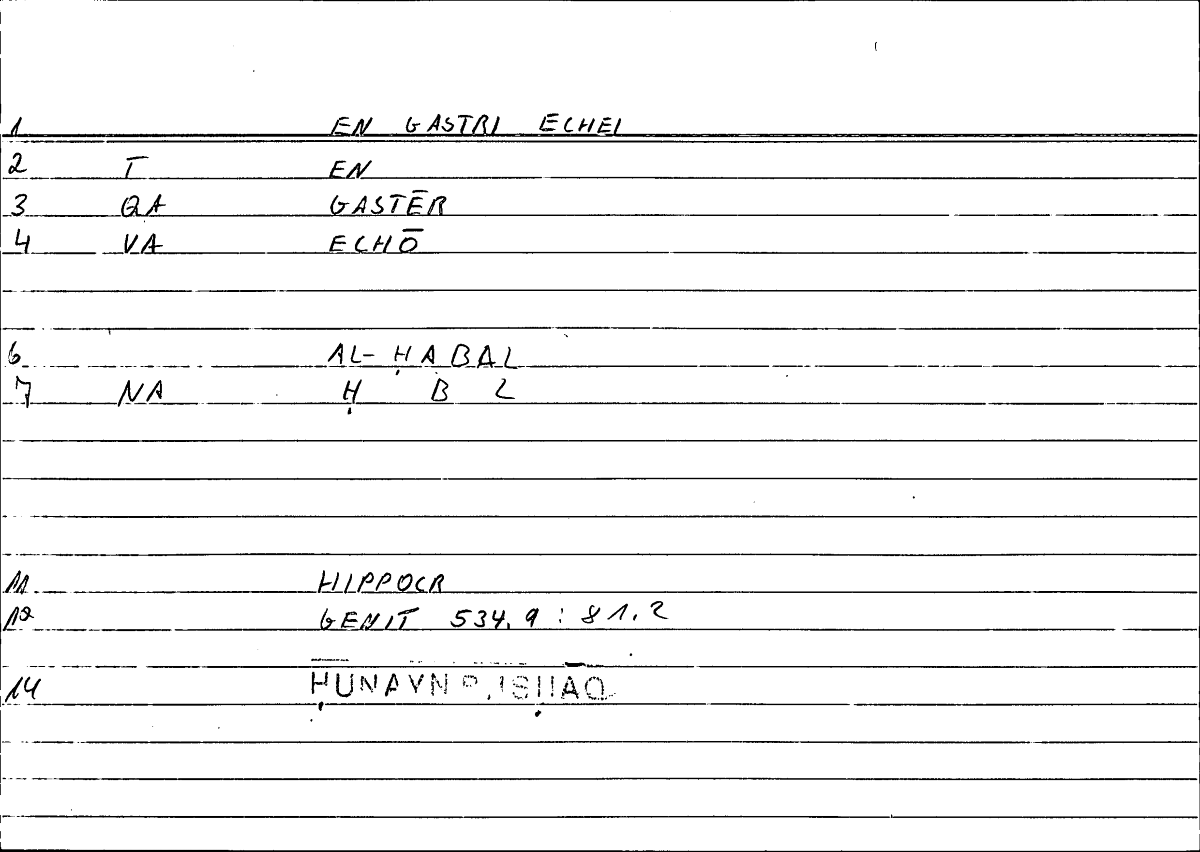 1 EN GASTRI ECHEI
2 T EN
3 QA GASTĒR
4 VA ECHŌ
6 AL-ḤABAL
7 NA Ḥ B L
11 HIPPOCR
12 GENIT 534.9 : 81.2
14 ḤUNAYN B. ISḤĀQ